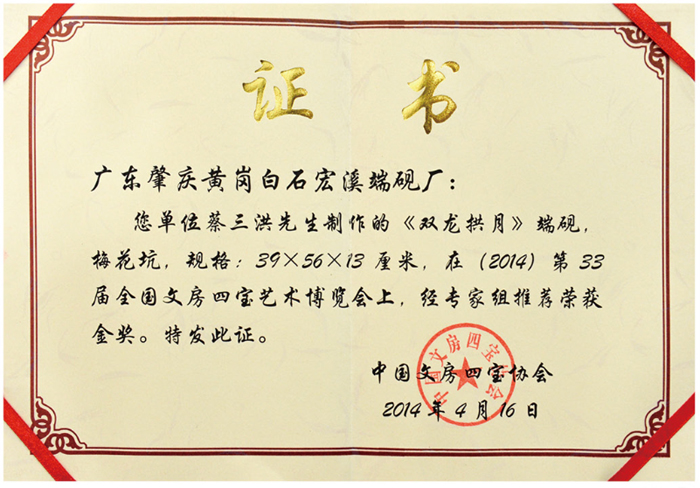 证 书
广东肇庆黄岗白石宏溪端砚厂：
您单位蔡三洪先生制作的《双龙拱月》端砚，
梅花坑，规格：39×56×13 厘米，在（2014）第 33
届全国文房四宝艺术博览会上，经专家组推荐荣获
金奖。特发此证。
中国文房四宝协会
中国文房四宝协会
2014 年 4 月 16 日